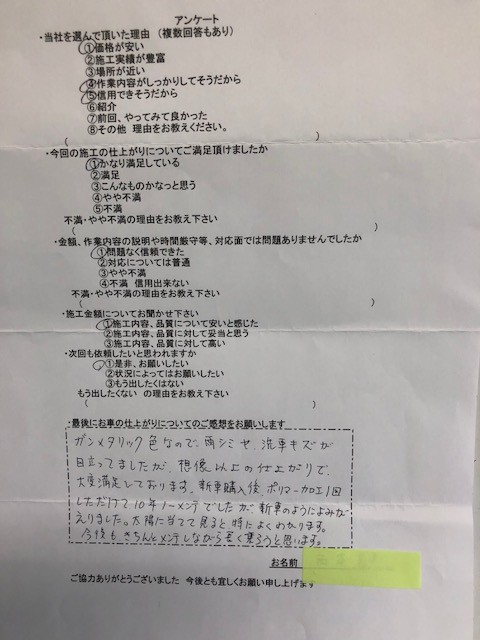 アンケート
・当社を選んで頂いた理由 (複数回答もあり)
①価格が安い
②施工実績が豊富
③場所が近い
④作業内容がしっかりしてそうだから
⑤信用できそうだから
⑥紹介
⑦前回、やってみて良かった
⑧その他 理由をお教えください。
( )
・今回の施工の仕上がりについてご満足頂けましたか
①かなり満足している
②満足
③こんなものかなっと思う
④やや不満
⑤不満
不満・やや不満の理由をお教え下さい
( )
・金額、作業内容の説明や時間厳守等、対応面では問題ありませんでしたか
①問題なく信頼できた
②対応については普通
③やや不満
④不満 信用出来ない
不満・やや不満の理由をお教え下さい
( )
・施工金額についてお聞かせ下さい
①施工内容、品質について安いと感じた
②施工内容、品質に対して妥当と思う
③施工内容、品質に対して高い
・次回も依頼したいと思われますか
①是非、お願いしたい
②状況によってはお願いしたい
③もう出したくはない
もう出したくない の理由をお教え下さい
( )
・最後にお車の仕上がりについてのご感想をお願いします
ガンメタリック色なので、雨シミや、洗車キズが
目立ってましたが、想像以上の仕上がりで、
大変満足しております。新車購入後、ポリマー加工1回
しただけで10年ノーメンテでしたが、新車のようによみが
えりました。太陽に当てて見ると特によくわかります。
今後も、きちんとメンテしながら長く乗ろうと思います。
お名前
ご協力ありがとうございました 今後とも宜しくお願い申し上げます